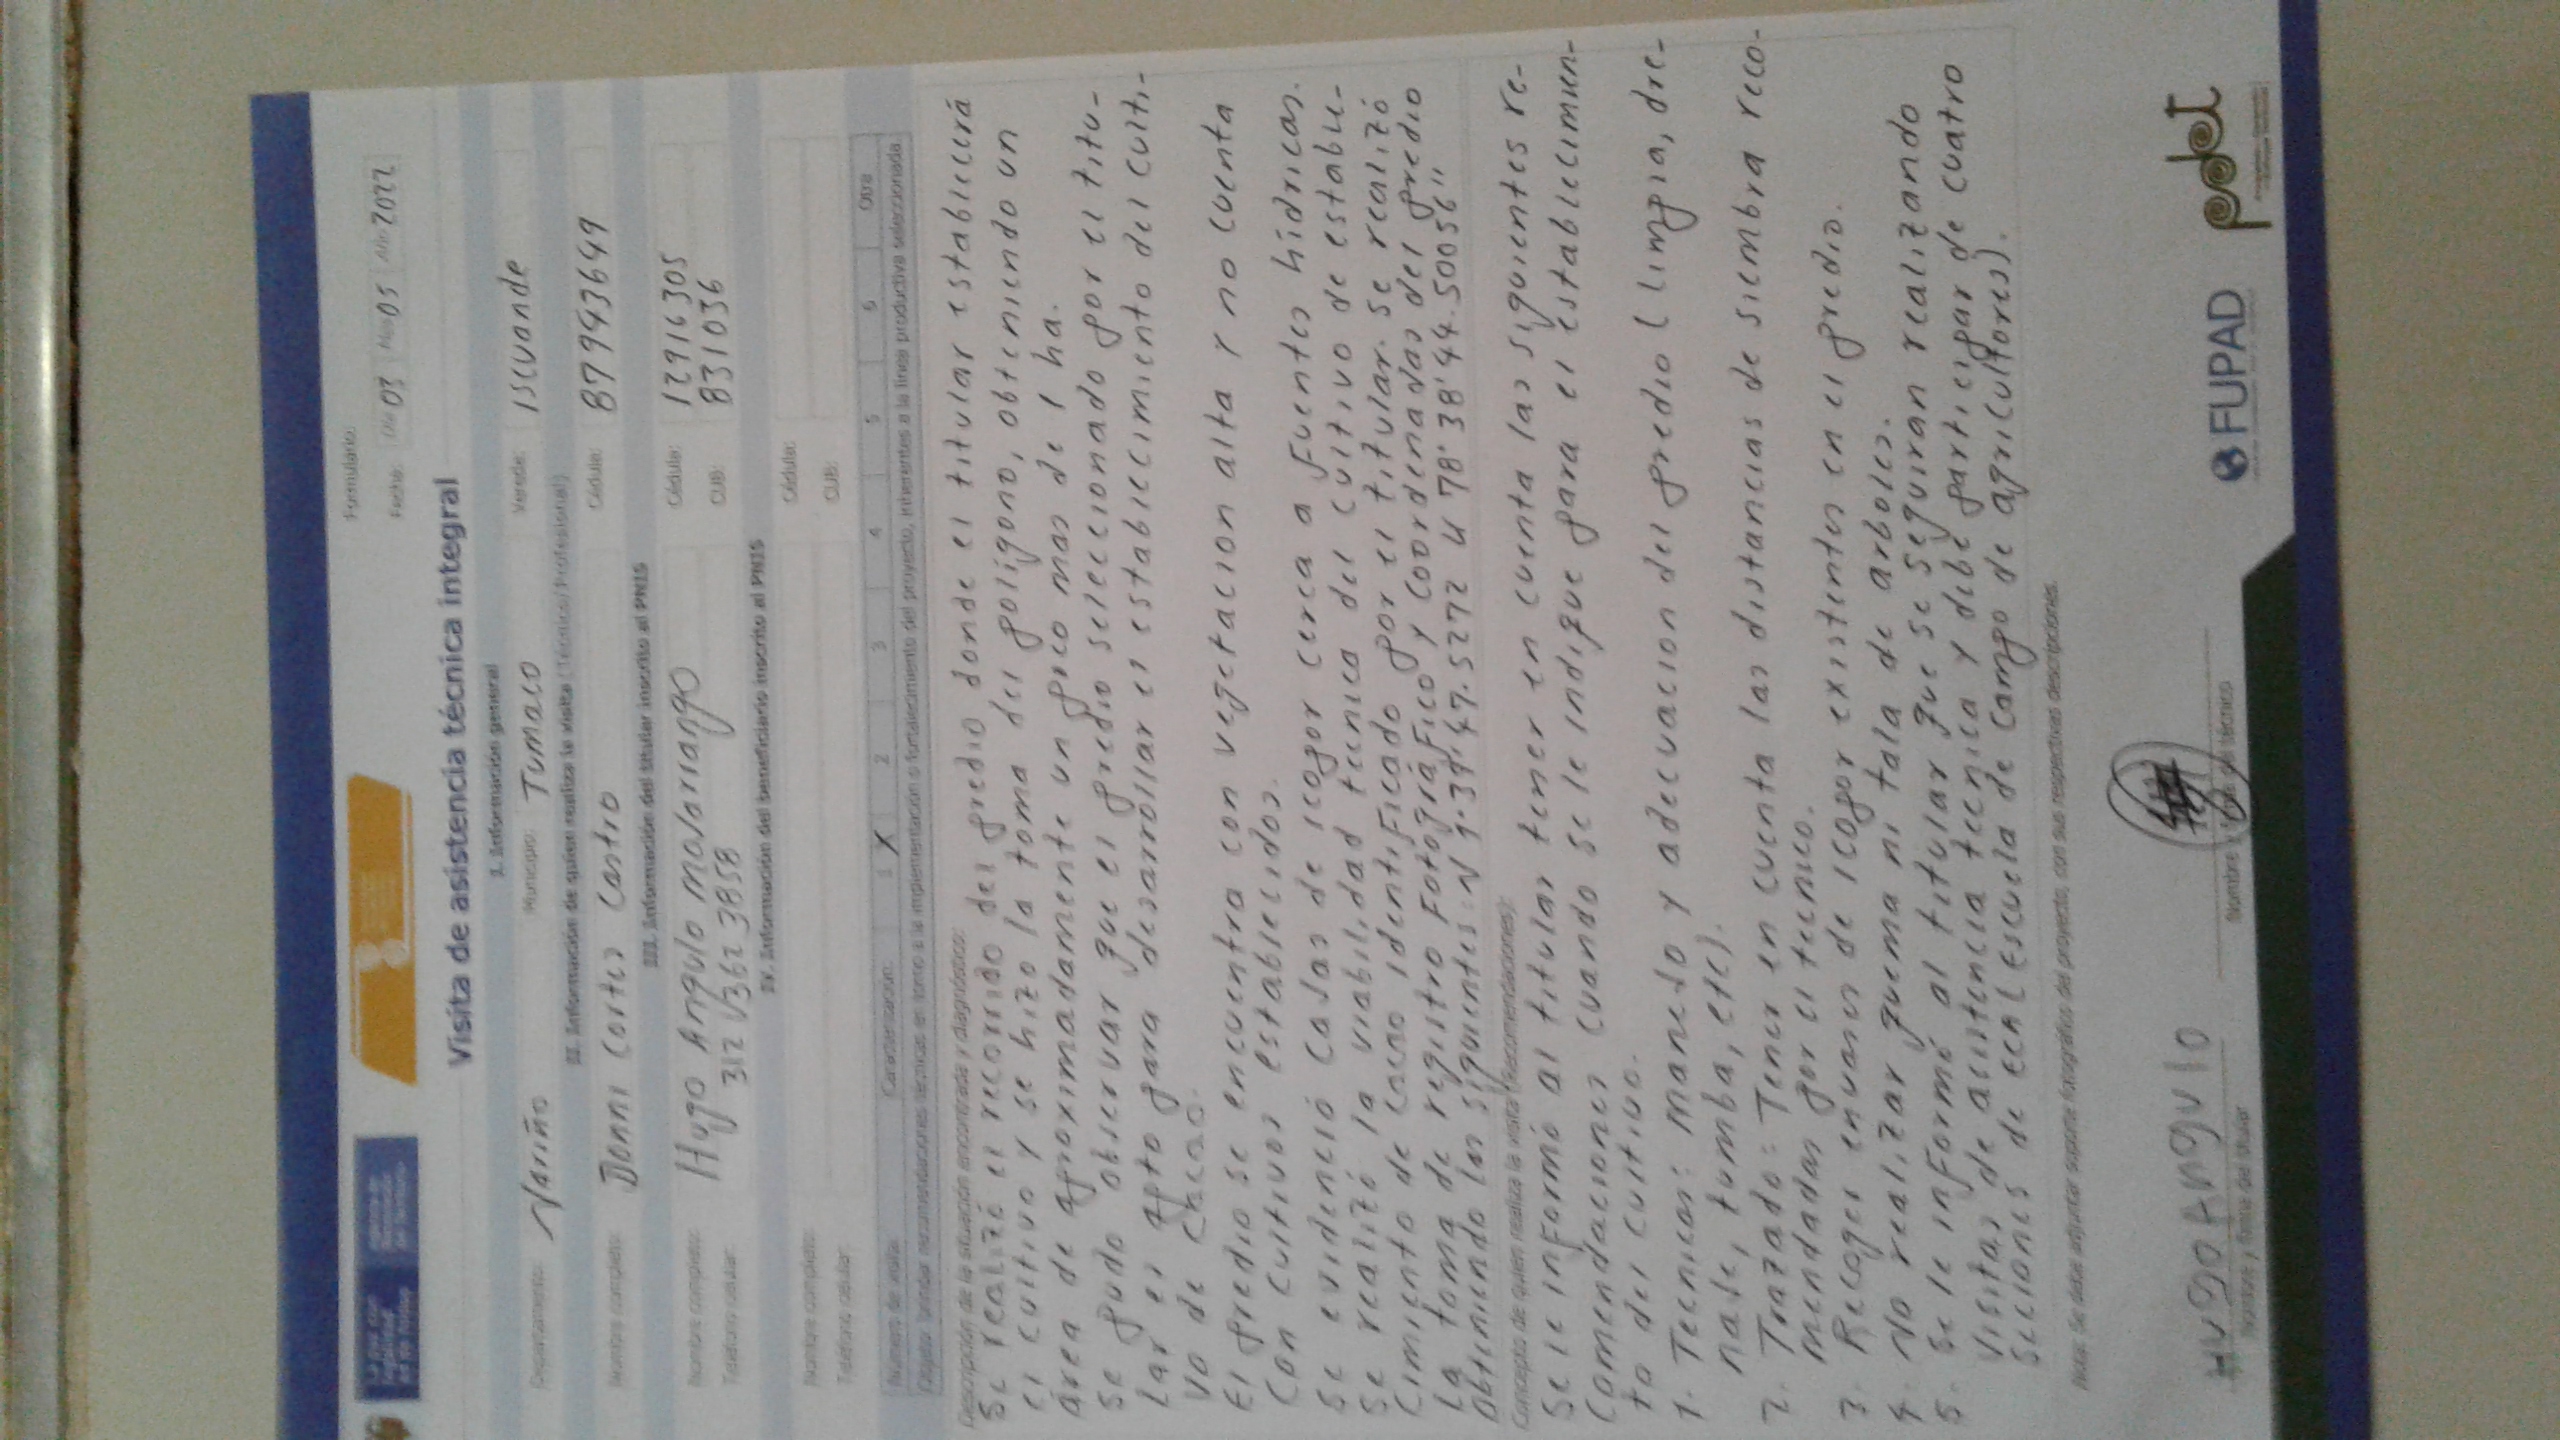 Formulario:
Fecha: Día 03 Mes 05 Año 2022
Visita de asistencia técnica integral
I. Información general
Departamento: Nariño Municipio: Tumaco Vereda: Iscuande
II. Información de quien realiza la visita (Técnico/Profesional)
Nombre completo: Donni Cortes Castro Cédula: 87943649
III. Información del titular inscrito al PNIS
Nombre completo: Hugo Angulo Cédula: 12916305
Teléfono celular: CUB: 831036
IV. Información del beneficiario inscrito al PNIS
Nombre completo: Cédula:
Teléfono celular: CUB:
Número de visita: Caracterización: 1 X 2 3 4 5 6 Otra
Objeto: brindar recomendaciones técnicas en torno a la implementación o fortalecimiento del proyecto, inherentes a la línea productiva seleccionada.
Descripción de la situación encontrada y diagnóstico:
Se realizó el recorrido del predio donde el titular establecerá
el cultivo y se hizo la toma del poligono, obteniendo un
área de aproximadamente un poco mas de 1 ha.
Se pudo observar que el predio seleccionado por el titu-
lar es apto para desarrollar el establecimiento del culti-
vo de cacao.
El predio se encuentra con vegetacion alta y no cuenta
con cultivos establecidos.
Se evidenció casas de icopor cerca a fuentes hídricas.
Se realizó la viabilidad tecnica del cultivo de estable-
cimiento de cacao identificado por el titular. Se realizó
la toma de registro fotográfico y coordenadas del predio
obteniendo las siguientes: N 1°39'47.5272 W 78°38'44.50056"
Concepto de quien realiza la visita (Recomendaciones):
Se le informó al titular tener en cuenta las siguientes re-
comendaciones cuando se le indique para el establecimien-
to del cultivo.
1. Tecnicas: manejo y adecuacion del predio (limpia, dre-
naje, tumba, etc).
2. Trazado: Tener en cuenta las distancias de siembra reco-
mendadas por el tecnico.
3. Recoger envases de icopor existentes en el predio.
4. No realizar quema ni tala de arboles.
5. Se le informó al titular que se seguiran realizando
visitas de asistencia tecnica y debe participar de cuatro
secciones de ECA (Escuela de Campo de agricultores).
Nota: Se debe adjuntar soporte fotográfico del proyecto, con sus respectivas descripciones.
HUgoANgUlo
Nombre y firma del titular Nombre y firma del técnico
FUPAD pdet